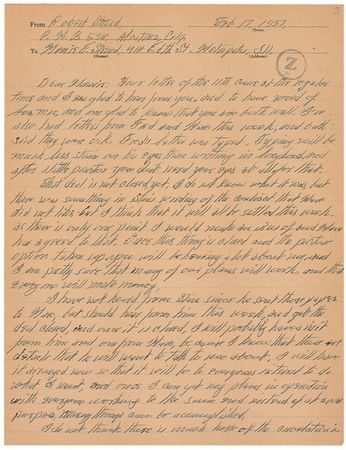 3
From Robert Stroud, Feb 17, 1952
P.M.B. 594, Alcatraz, Calif.
To Mamie E. Stroud, 411 E. 6th St. Metropolis, Ill.
Z
Dear Mamie: Your letter of the 11th came at the regular
time and I was glad to hear from you, and to have word of
and am glad to know that you are both well. I've
also had letters from Fred and this week, and both
said they were o.k. Fred's letter was typed. Typing will be
much less strain on his eyes than writing in longhand, and
after little practice you don't need your eyes at all for that.
That deal is not closed yet. I do not know what it was, but
there was something in the wording of the contract that
did not like but I think that it will all be settled this week,
as there is only one point I would make an issue of and
has agreed to that. Once this thing is closed and the picture
option taken up, you will be hearing a lot about me, and I
am pretty sure that many of our plans will work, and that
everyone will make money.
I have not heard from since he sent those papers
to , but should hear from him this week, and get the
deal closed, and once it is closed, I will probably have a visit
from him and one from , because I know that there are
details that he will want to talk to me about. I will have
it arranged now so that it will be to everyones interest to do
what I want, and once I can get my plans in operation
with everyone working to the same end instead of at cross
purposes, many things can be accomplished.
I do not think there is much hope of the in